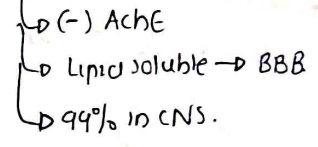 ↳ (-) AchE
↳ Lipid soluble → BBB
↳ 99% in CNS.